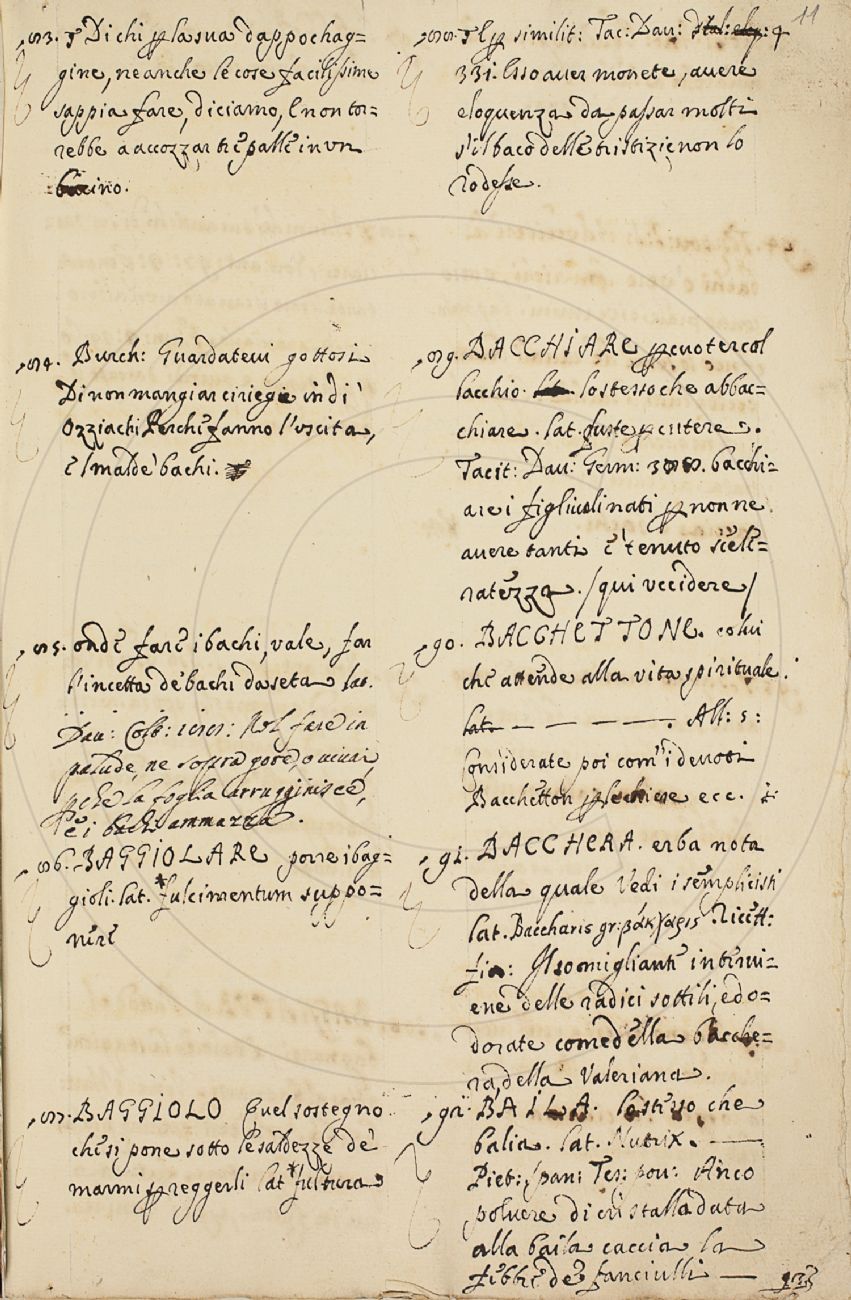 11
83. Di chi p la sua dappochag=
gine, ne anche le cose facilissime
sappia fare, diciamo, E non cor=
rebbe a accozzar tre palle in un
bacino.
84. Burch: Guardatevi gottosi
Di non mangiar ciriegie in dì
Ozziachi Perche fanno l'uscita,
E 'l mal de' bachi.
85. onde fare i bachi, vale, far
l'incetta de bachi da seta lat.
Dav: Colt: 181: Nol fare in
padude, ne sopra gore, o vivai,
pche la foglia arrugginisce,
e i bachi ammazza.
86. BAGGIOLARE porre i bag=
gioli. lat. *fulcimentum suppo=
nere
87. BAGGIOLO Quel sostegno
che si pone sotto le saldezze de'
marmi p reggerli lat *fultura
88. E p similit: Tac: Dav:
331. Esso aver monete, avere
eloquenza da passar molti
s'il baco delle tristizie non lo
rodesse.
89. BACCHIARE percuoter col
bacchio. lo stesso che abbac=
chiare. lat. fuste pcutere.
Tacit: Dav: Germ: bacchi=
are i figliuoli nati p non ne
avere tanti è tenuto scele=
ratezza. /qui uccidere/
90. BACCHETTONE. colui
che attende alla vita spirituale.
lat. — — — — — . All: 5:
Considerate poi com'i devoti
Bacchetton p le chiese ecc.
91. BACCHERA. erba nota
della quale Vedi i semplicisti
lat. Baccharis gr: βάκχαρις Ricett:
fio: Il somigliante intervi=
ene delle radici sottili, e do=
dorate come della bacche=
ra, della Valeriana.
92. BAILA. lo stesso che
balia. lat. Nutrix. —
Piet: Span: Tes: pov: Anco
polvere di cristallo data
alla baila caccia la
febbre de' fanciulli —
93